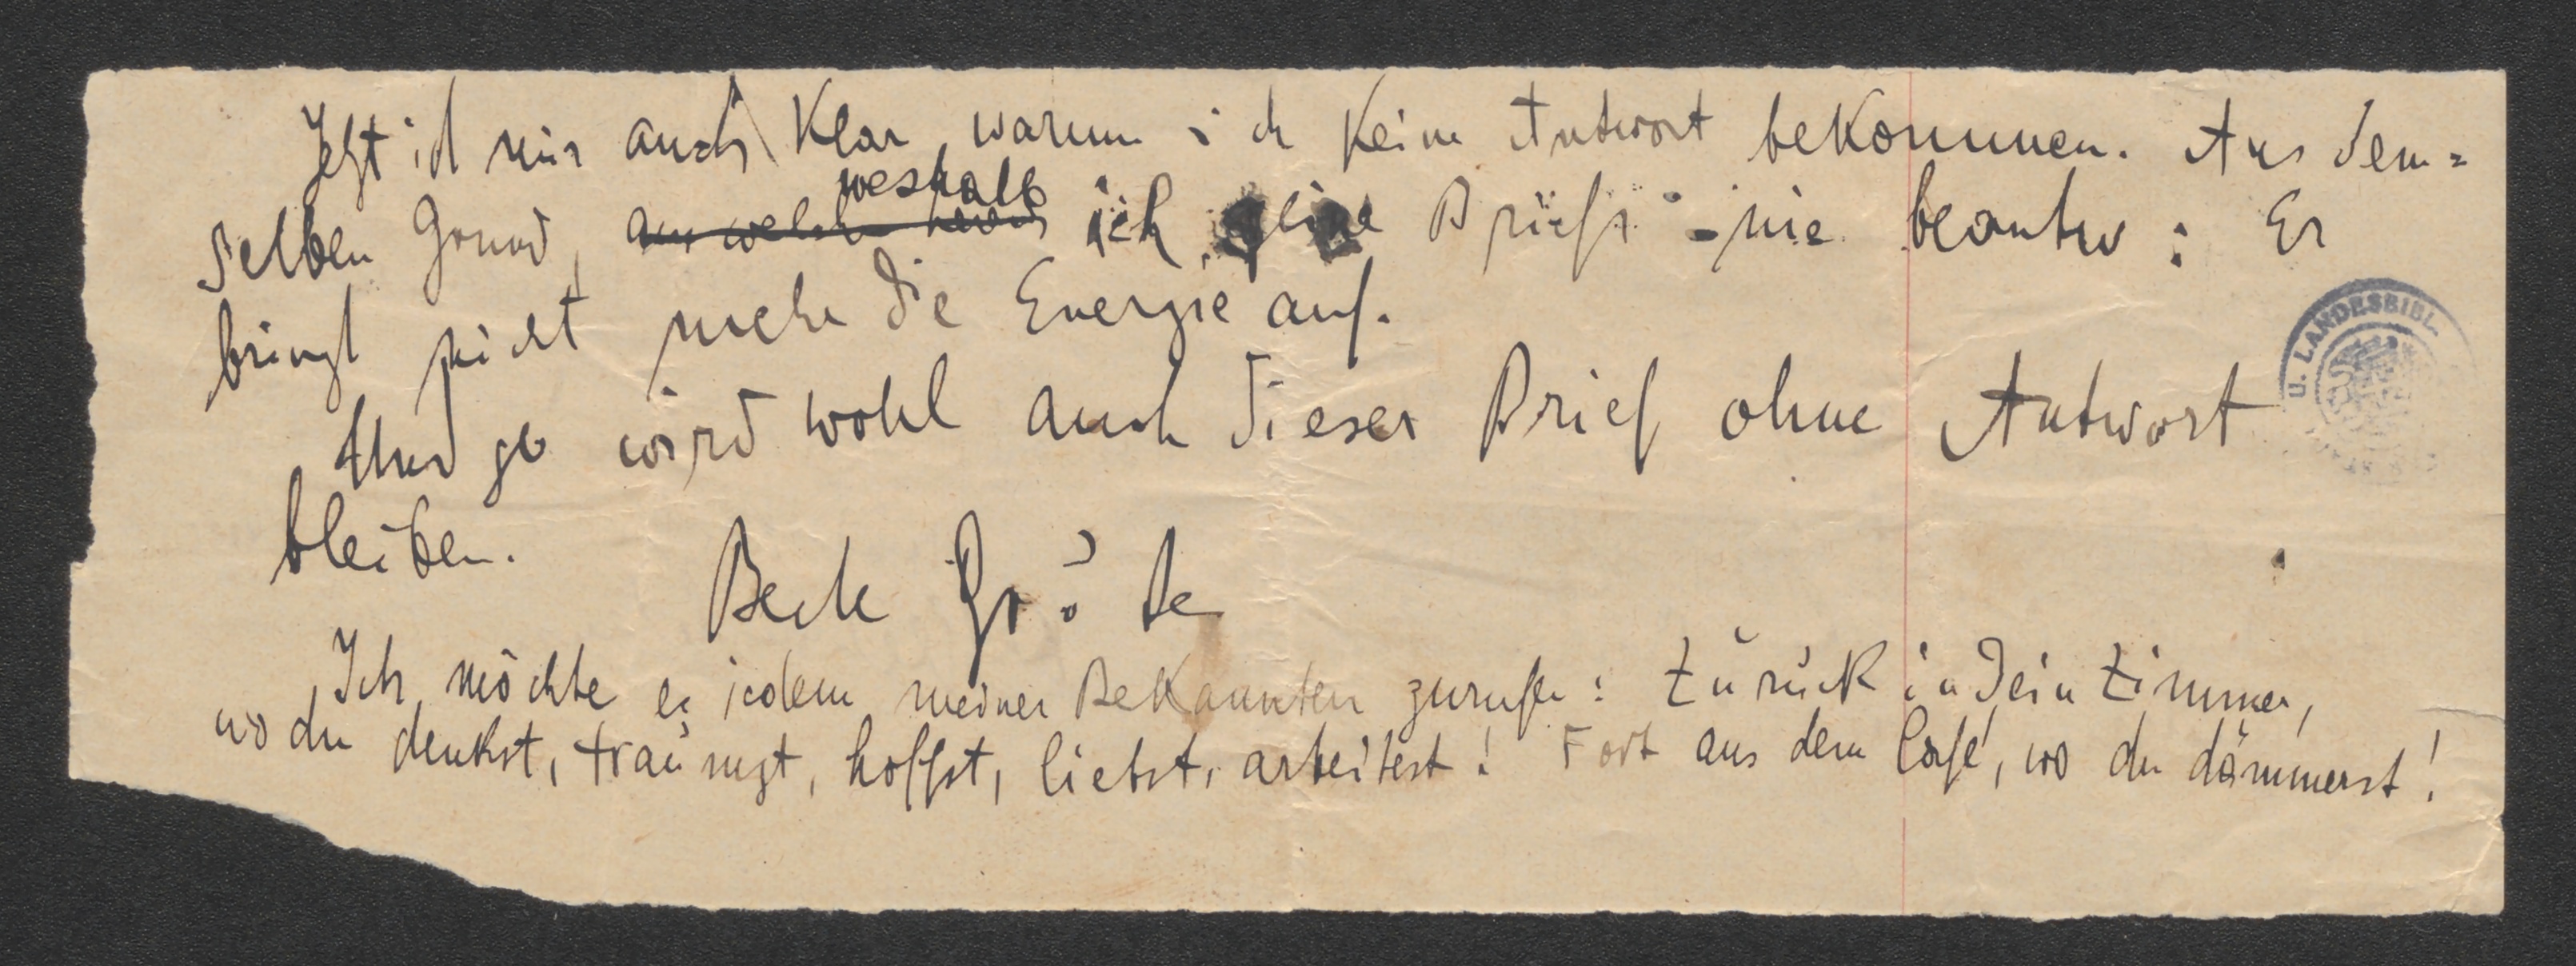 Jetzt ist mir auch klar warum ich keine Antwort bekommen. Aus dem=
selben Grund, weshalb
aus welchem ich seine Briefe nie beantw: Er
bringt nicht mehr die Energie auf.
Und so wird wohl auch dieser Brief ohne Antwort
bleiben.
U. LANDESBIBL.
Beste Grüße
Ich möchte es jedem meiner Bekannten zurufen: Zurück in dein Zimmer,
wo du denkst, träumst, hoffst, liebst, arbeitest! Fort aus dem Café, wo du dämmerst!